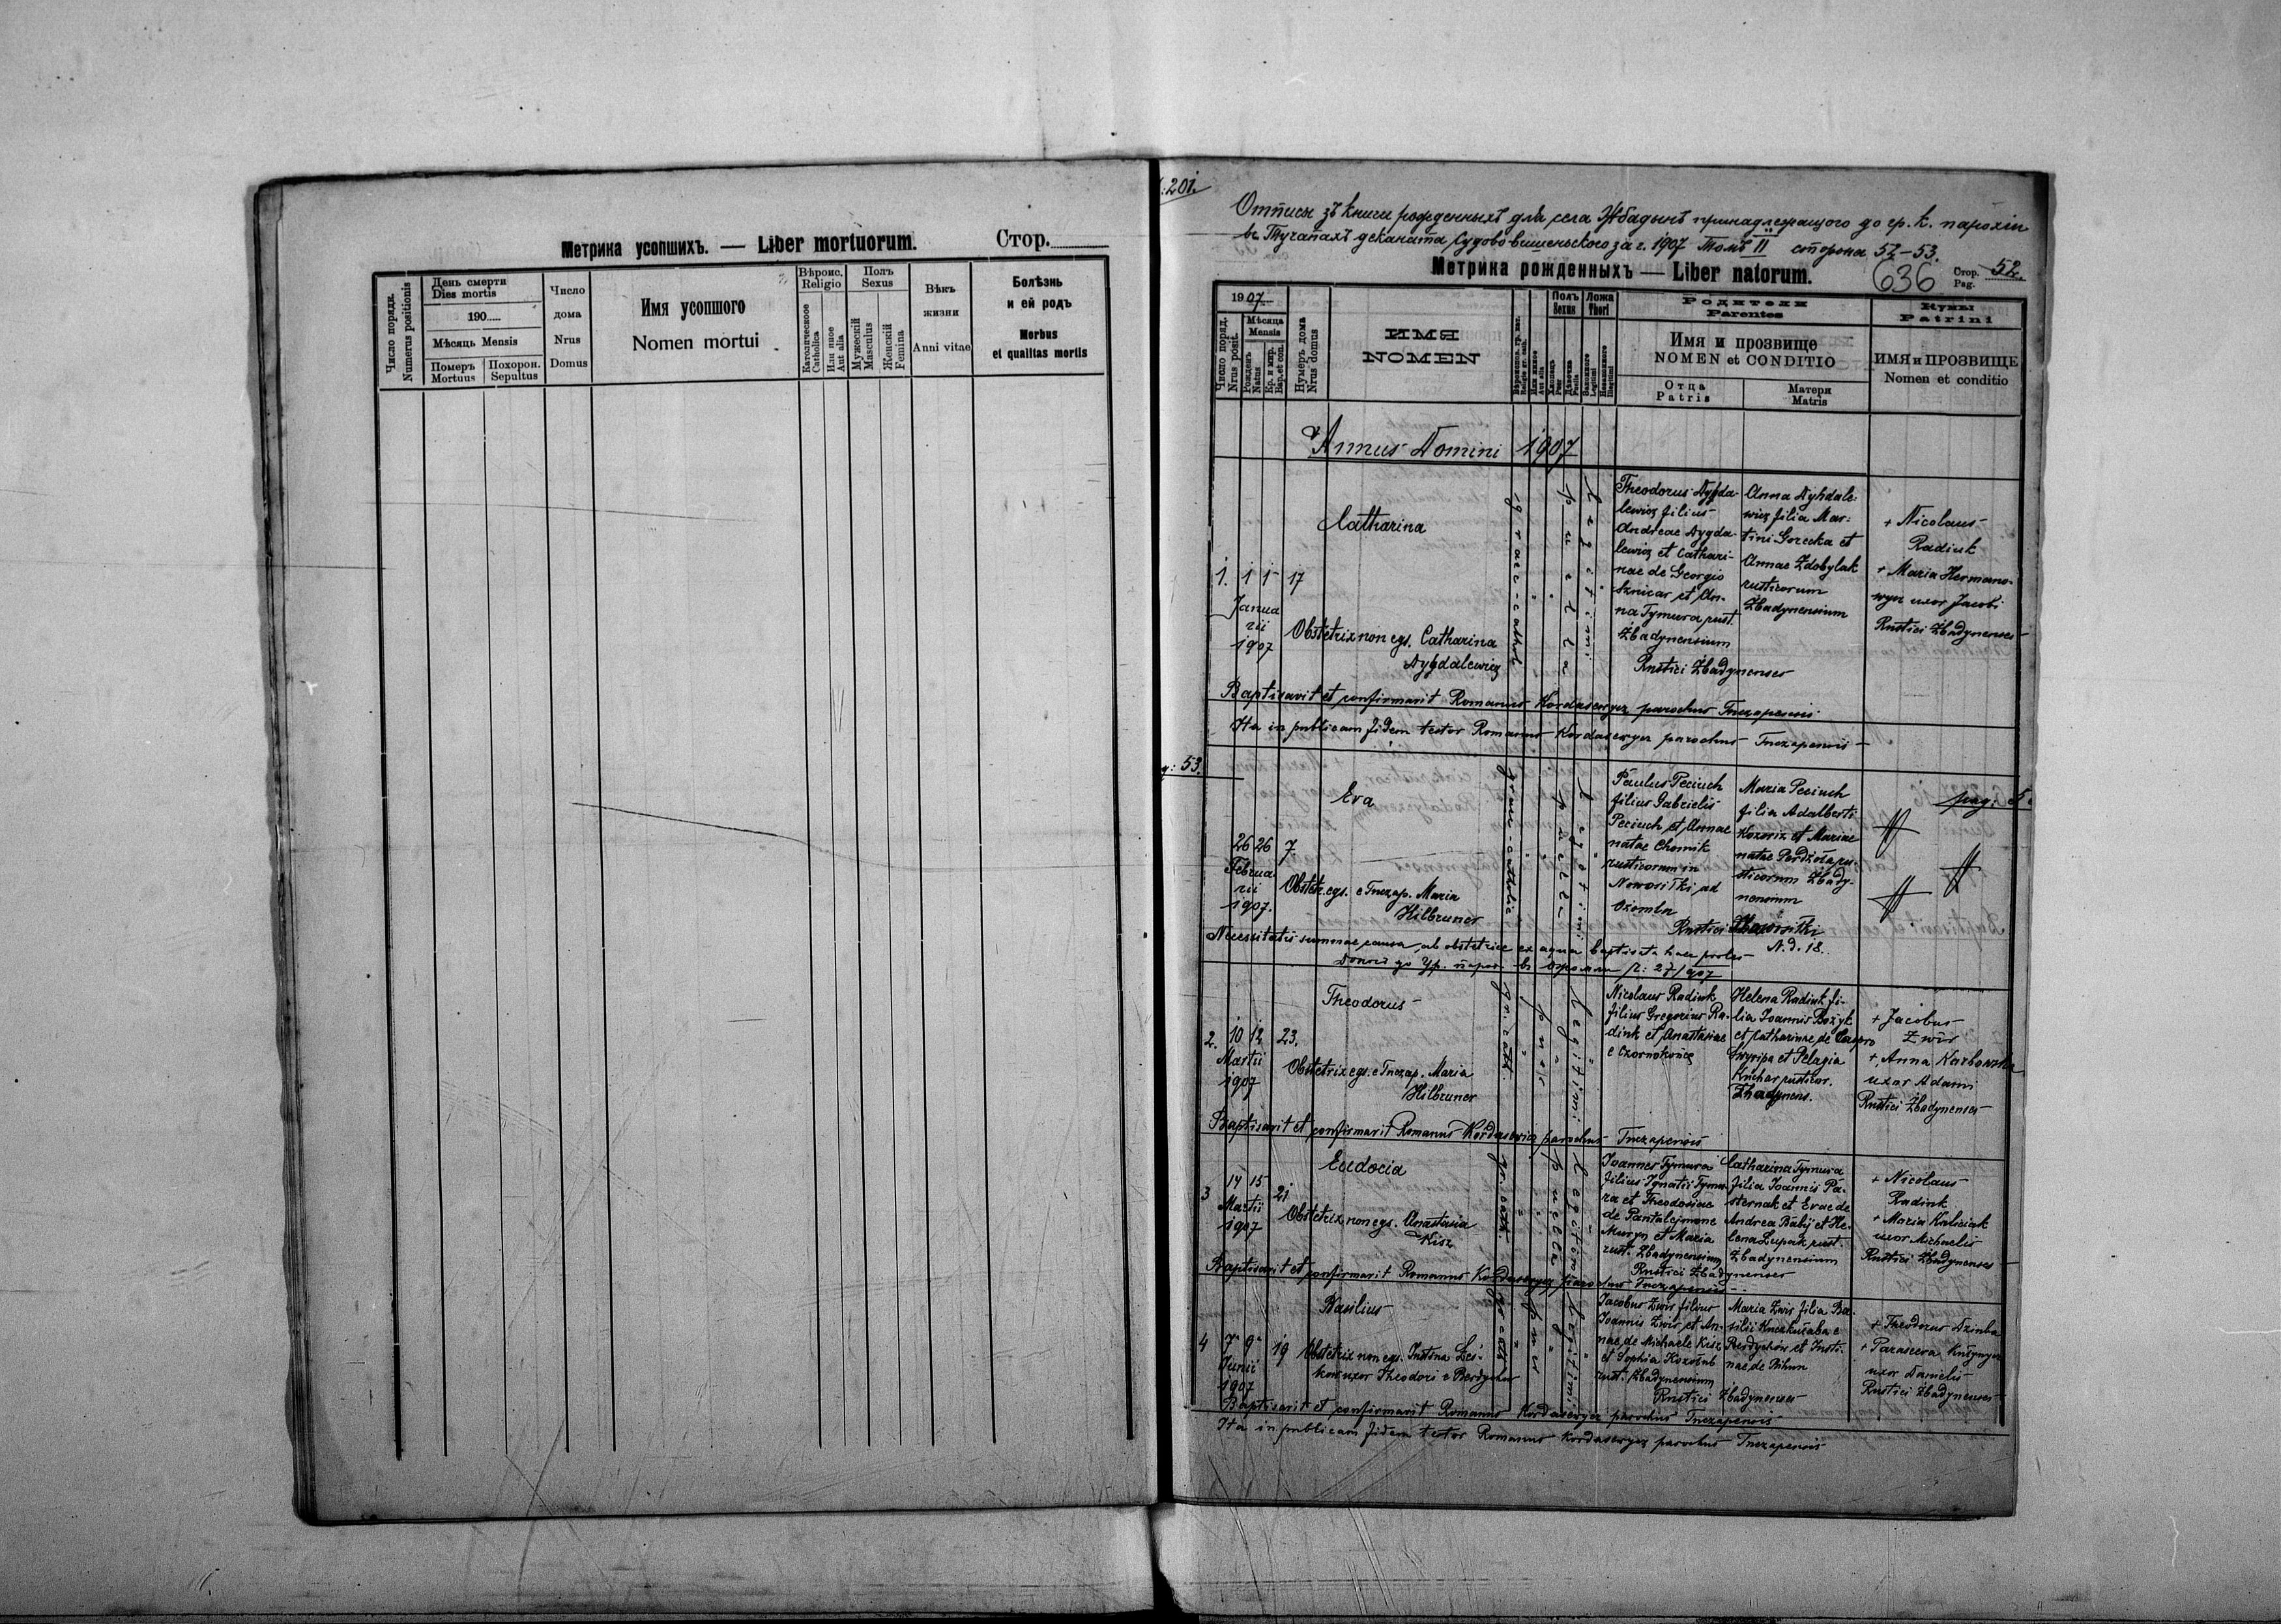 Метрика усопшихъ. — Liber mortuorum.
Стор.
Число порядк.
Numerus positionis
День смерти
Dies mortis
190
Мѣсяць Mensis
Померъ
Mortuus
Похорон.
Sepultus
Число
дома
Nrus
Domus
Имя усопшого
Nomen mortui
Вѣроис.
Religio
Католическоое
Catholica
Или иное
Aut alia
Полъ
Sexus
Мужескій
Masculus
Женскій
Femina
Вѣкъ
жизни
Anni vitae
Болѣзнь
и ей родъ
Morbus
et qualitas mortis
201.
Отписы зъ книги рожденныхъ для села Жбадынъ принадлежащого до гр. к. парохіи
въ Тучапахъ деканата Судово вишеньского за г. 1907 Томъ II сторона 52–53.
Метрика рожденныхъ — Liber natorum.
636
Стор.
Pag.
52.
1907
Число поряд.
Nrus posit.
Мѣсяца
Mensis
Рожденъ
Natus
Кр. и мѵр.
Bap. et con.
Нумеръ дома
Nrus domus
ИМЯ
NOMEN
Или иное
Aut alia
Полъ
Sexus
Хлопець
Puer
Дѣвочка
Puella
Ложа
Thori
Законного
Legitimi
Незаконного
Illegitimi
Родители
Parentes
Имя и прозвище
NOMEN et CONDITIO
Отца
Patris
Матери
Matris
Кумы
Patrini
ИМЯ и ПРОЗВИЩЕ
Nomen et conditio
Annus Domini 1907
1. 1 1 17
Januarii
1907
Catharina
Obstetrix non egs. Catharina
Dygdalewicz
graec-cathol
puella
Legitimi
Theodorus Dygda-
lewicz filius
Andreae Dygda-
lewicz et Cathari-
nae de Georgio
Sznicar et An-
na Tymura rust.
Żbadynensium
Anna Dyhdale-
wicz filia Mar-
tini Gorecka et
Annae Zdobylak
rusticorum
Żbadynensium
Rustici Żbadynenses
+ Nicolaus
Radiuk
+ Maria Hermano-
wycz uxor Jacobi
Rustici Żbadynenses
Baptisavit et confirmavit Romanus Kordasewycz parochus Tuczapensis
Ita in publicam fidem testor Romanus Kordasewycz parochus Tuczapensis
53.
26 26 7
Februarii
1907.
Eva
Obstetr. egs. e Tuczap. Maria
Hilbruner
graec-catholic
puella
Legitimi
Paulus Peciuch
filius Gabrielis
Peciuch et Annae
natae Chomik
rusticorum in
Nowosiłki ad
Ożomla
Maria Peciuch
filia Adalberti
Kozoriz et Mariae
natae Perdżoła ru-
sticorum Żbady-
nensium
Rustici Nowosiłki
N. d. 18.
pag. 5
Necessitatis summae causa, ab obstetrice ex aqua baptisata haec proles
2. 10 12 23.
Martii
1907
Theodorus
Obstetrix egs. e Tuczap. Maria
Hilbruner
gr. cath.
puer
Legitimi
Nicolaus Radiuk
filius Gregorius Ra-
diuk et Anastasiae
e Czornokońce
Helena Radiuk fi-
lia Joannis Bożyk
et Catharinae de Caspro
Snyripa et Pelagia
Kuchar rusticor.
Żbadynens.
+ Jacobus
Zwir
+ Anna Karbowska
uxor Adami
Rustici Żbadynenses
Baptisavit et confirmavit Romanus Kordasewicz parochus Tuczapensis
3 14 15 21
Martii
1907
Eudocia
Obstetrix non egs. Anastasia
Kisz
gr. cath.
puella
Legitimi
Joannes Tymura
filius Ignatii Tymu-
ra et Theodosiae
de Pantalejmone
Muryn et Maria
rust. Żbadynensium
Catharina Tymura
filia Joannis Pa-
sternak et Evae de
Andrea Babij et He-
lena Łupak rust.
Żbadynensium
Rustici Żbadynenses
+ Nicolaus
Radiuk
+ Maria Kaliciak
uxor Michaelis
Rustici Żbadynenses
Baptisavit et confirmavit Romanus Kordasewycz parochus Tuczapensis
4 7 9 19
Junii
1907
Basilius
Obstetrix non egs. Justina Leś-
kow uxor Theodori e Berdychów
gr. cath
puer
Legitimi
Jacobus Zwir filius
Joannis Zwir et An-
nae de Michaele Kisz
et Sophia Kozołub
rust. Żbadynensium
Maria Zwir filia Ba-
silii Kuczkużaba e
Berdychów et Justi-
nae de Rihun
Rustici Żbadynenses
+ Theodorus Dziuba
+ Parasceva
uxor Danielis
Rustici Żbadynenses
Baptisavit et confirmavit Romanus Kordasewycz parochus Tuczapensis
Ita in publicam fidem testor Romanus Kordasewycz parochus Tuczapensis